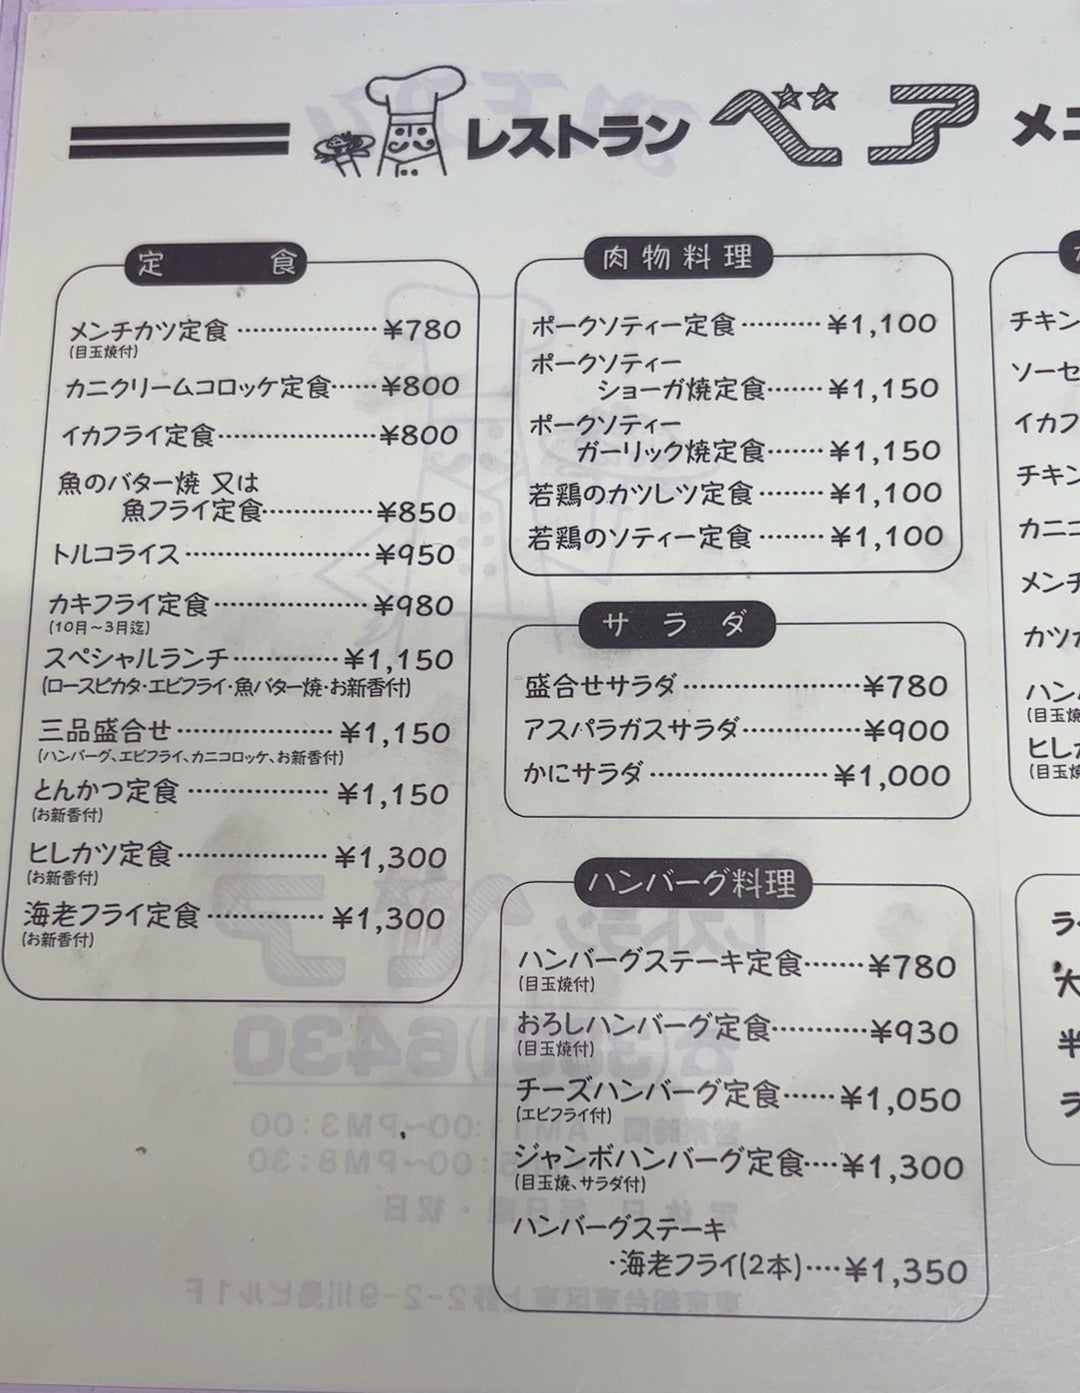 レストラン ベア メニ
定食
メンチカツ定食 ………………¥780
(目玉焼付)
カニクリームコロッケ定食……¥800
イカフライ定食…………………¥800
魚のバター焼 又は
魚フライ定食……………¥850
トルコライス……………………¥950
カキフライ定食…………………¥980
(10月～3月迄)
スペシャルランチ…………¥1,150
(ロースピカタ・エビフライ・魚バター焼・お新香付)
三品盛合せ………………¥1,150
(ハンバーグ、エビフライ、カニコロッケ、お新香付)
とんかつ定食………………¥1,150
(お新香付)
ヒレカツ定食………………¥1,300
(お新香付)
海老フライ定食……………¥1,300
(お新香付)
肉物料理
ポークソティー定食………¥1,100
ポークソティー
ショーガ焼定食……¥1,150
ポークソティー
ガーリック焼定食……¥1,150
若鶏のカツレツ定食………¥1,100
若鶏のソティー定食………¥1,100
サラダ
盛合せサラダ…………………¥780
アスパラガスサラダ…………¥900
かにサラダ…………………¥1,000
ハンバーグ料理
ハンバーグステーキ定食……¥780
(目玉焼付)
おろしハンバーグ定食…………¥930
(目玉焼付)
チーズハンバーグ定食……¥1,050
(エビフライ付)
ジャンボハンバーグ定食…¥1,300
(目玉焼、サラダ付)
ハンバーグステーキ
・海老フライ(2本)…¥1,350
チキン
ソーセ
イカフ
チキン
カニコ
メンチ
カツカ
ハンバ
(目玉焼
ヒレカ
(目玉焼
ラ
大
半
ラ